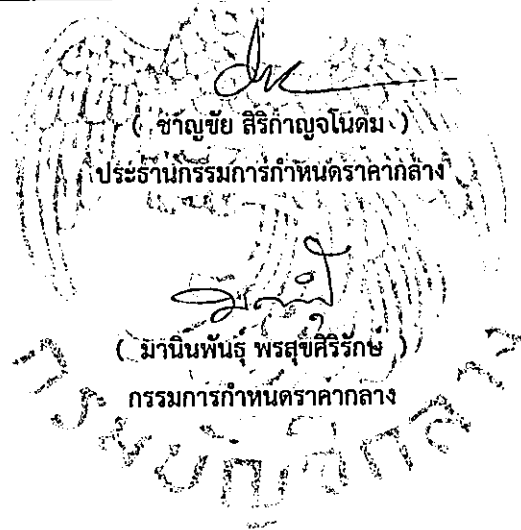 ( ชาญชัย สิริกาญจโนดม )
ประธานกรรมการกำหนดราคากลาง
( มานินพันธุ์ พรสุขศิริรักษ์ )
กรรมการกำหนดราคากลาง
กรมบัญชีกลาง